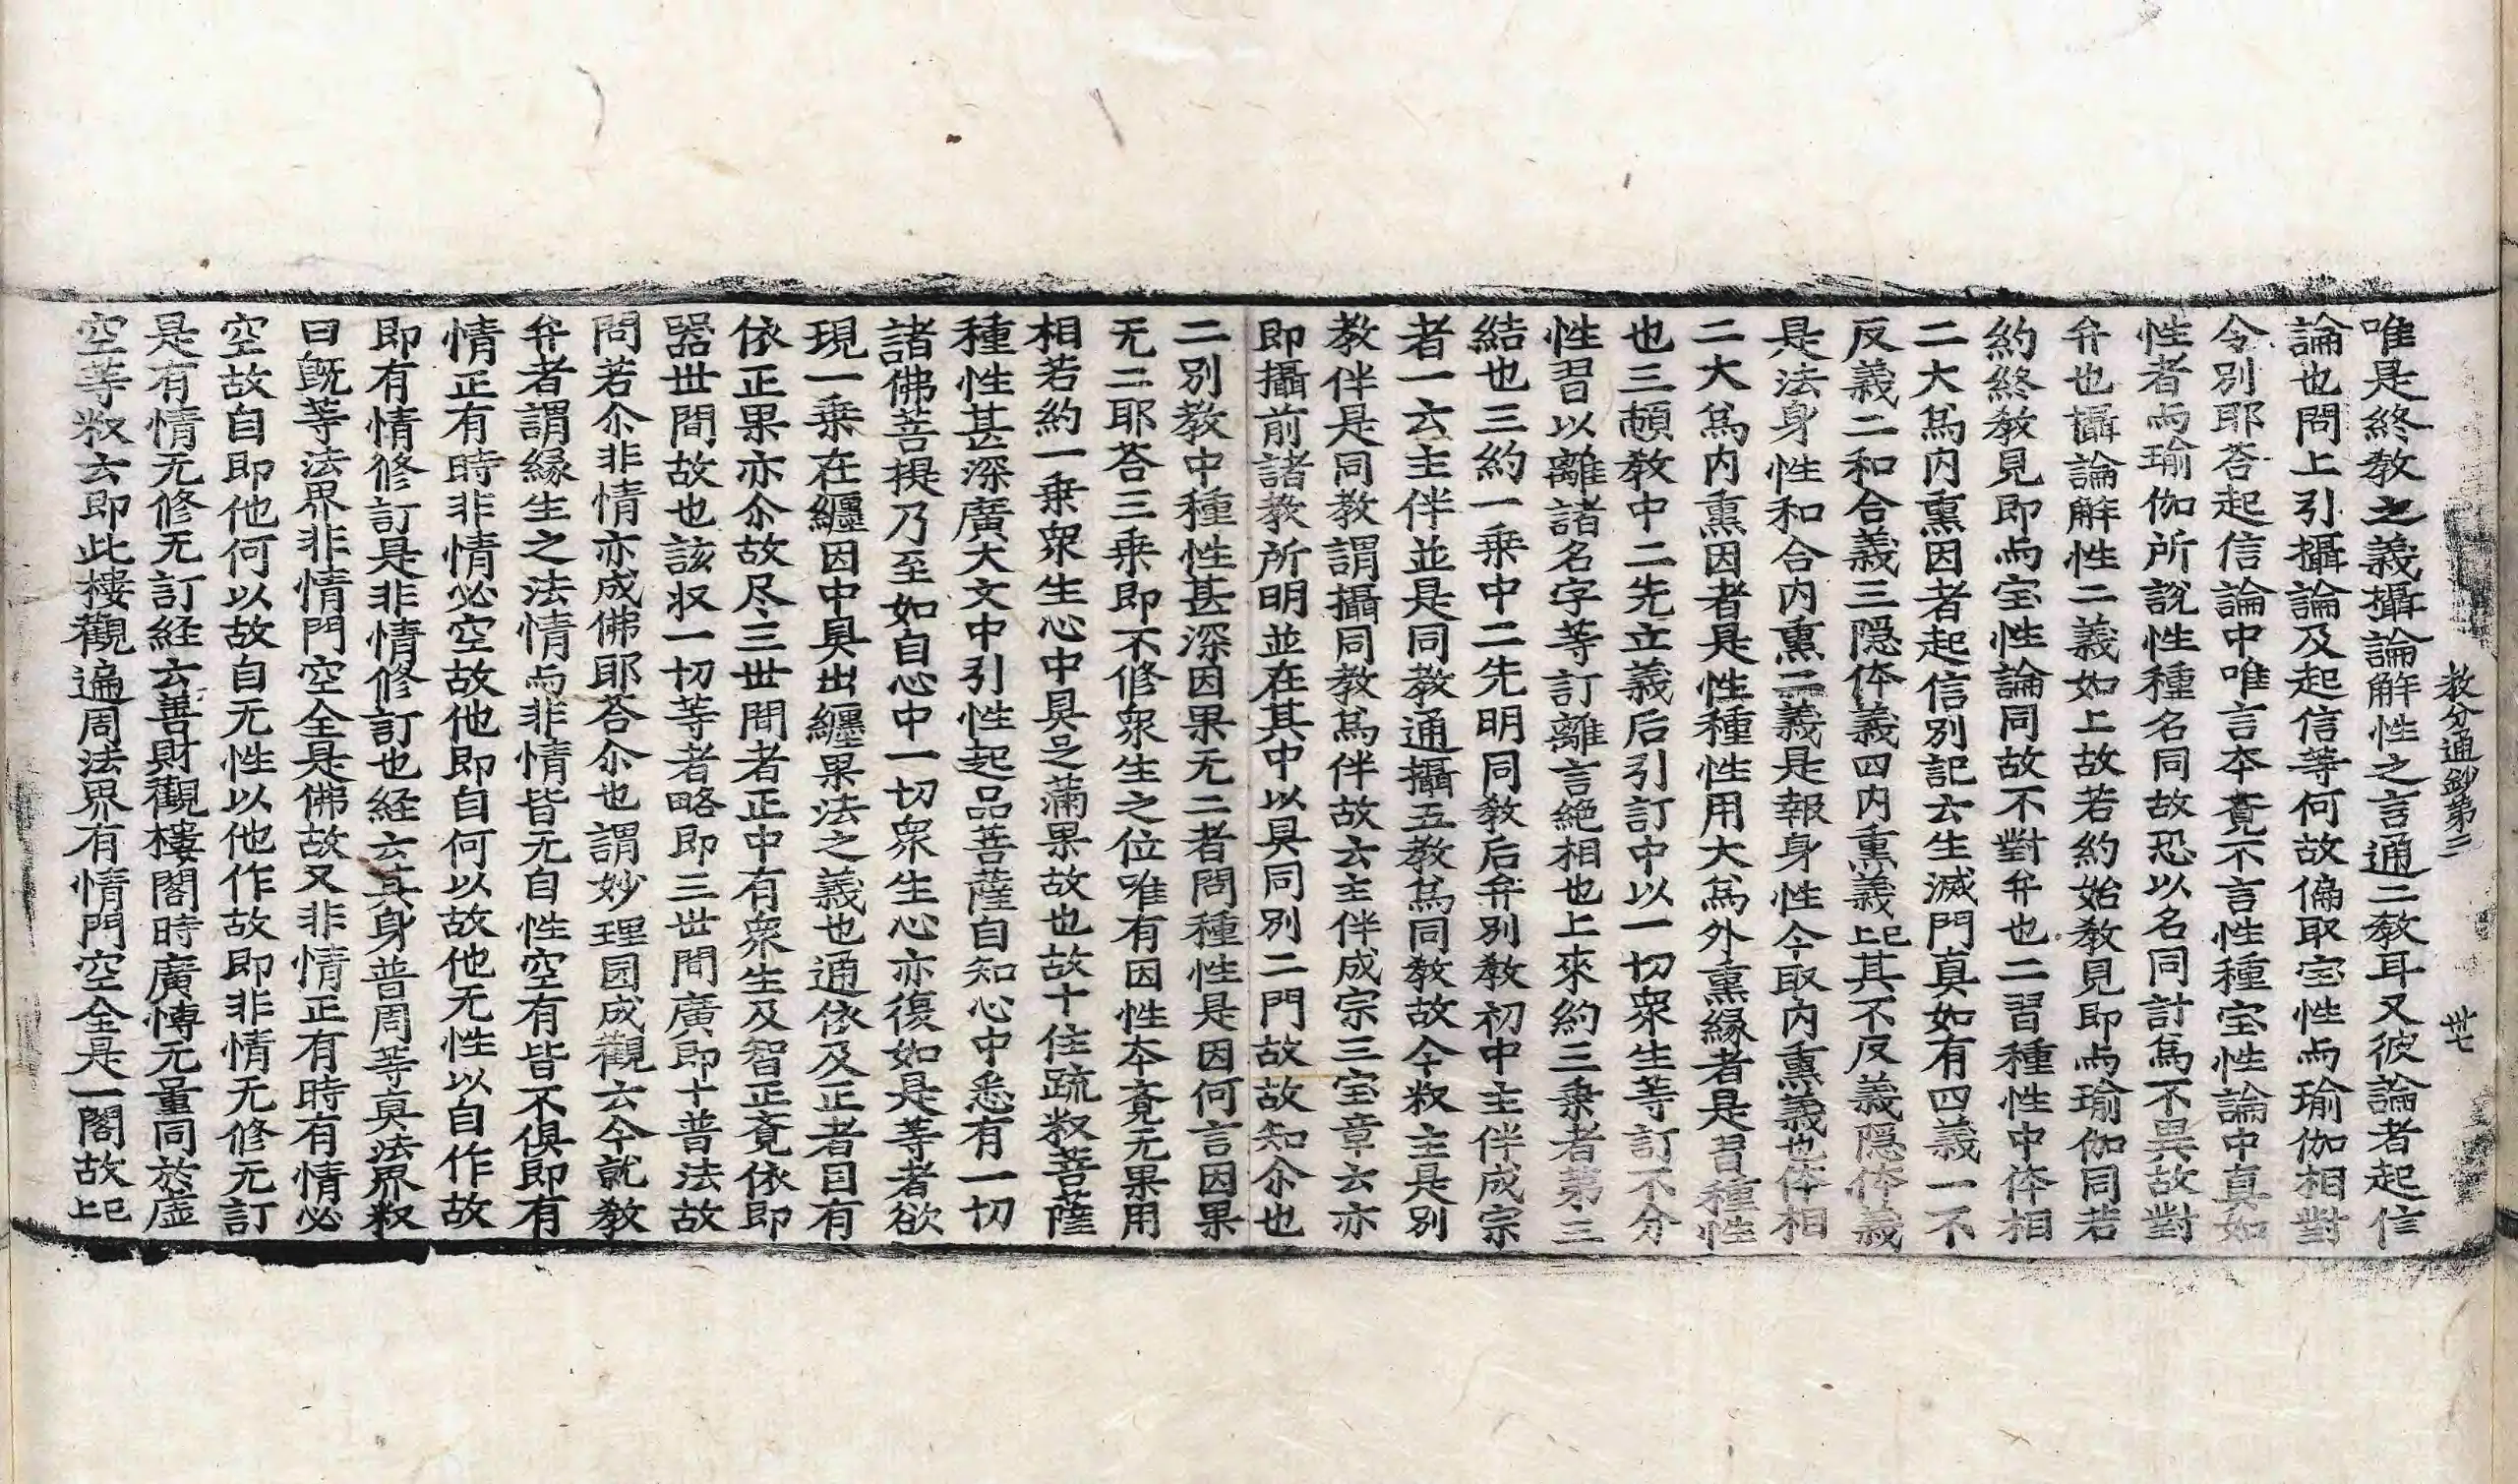 教分通鈔第三 卅七
唯是終教之義攝論解性之言通二教耳又彼論者起信
論也問上引攝論及起信等何故偏取宝性而瑜伽相對
令別耶荅起信論中唯言本覔不言性種宝性論中真如
性者而瑜伽所說性種名同故恐以名同計爲不異故對
弁也攝論解性二義如上故若約始教見即而瑜伽同若
約終教見即而宝性論同故不對弁也二習種性中体相
二大爲内熏因者起信別記云生滅門真如有四義一不
反義二和合義三隠体義四内熏義上已其不反義隠体義
是法身性和合内熏二義是報身性今取内熏義也体相
二大爲内熏因者是性種性用大爲外熏緣者是習種性
也三頓教中二先立義后引訂中以一切衆生等訂不分
性習以離諸名字等訂離言絶相也上來約三乗者第三
結也三約一乗中二先明同教后弁別教初中主伴成宗
者一云主伴並是同教通攝五教爲同教故今釈主是別
教伴是同教謂攝同教爲伴故云主伴成宗三宝章云亦
即攝前諸教所明並在其中以具同別二門故故知尒也
二別教中種性甚深因果无二者問種性是因何言因果
无二耶荅三乗即不修衆生之位唯有因性本覔无果用
相若約一乗衆生心中具足滿果故也故十住䟽釈菩薩
種性甚深廣大文中引性起品菩薩自知心中悉有一切
諸佛菩提乃至如自心中一切衆生心亦復如是等者欲
現一乗在纏因中具出纏果法之義也通依及正者目有
依正果亦尒故尽三世間者正中有衆生及智正覔依即
器世間故也該収一切等者略即三世間廣即十普法故
問若尒非情亦成佛耶荅尒也謂妙理囩成觀云今就教
弁者謂緣生之法情而非情皆无自性空有皆不俱即有
情正有時非情必空故他即自何以故他无性以自作故
即有情修訂是非情修訂也経云其身普周等真法界釈
曰旣等法界非情門空全是佛故又非情正有時有情必
空故自即他何以故自无性以他作故即非情无修无訂
是有情无修无訂経云善財觀樓閣時廣博无量同於虛
空等釈云即此樓觀遍周法界有情門空全是一閣故上已